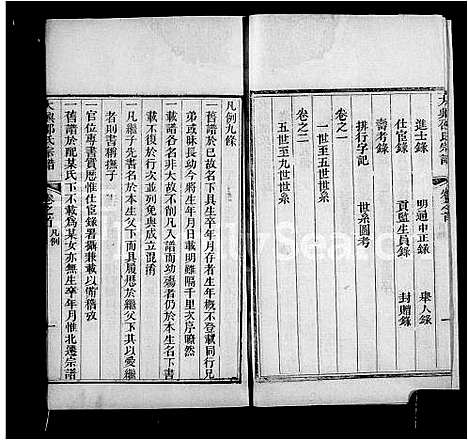 大興邵氏宗譜　卷之首
進士錄　明通中正錄　舉人錄
仕宦錄　貢監生員錄　封贈錄
壽考錄
拼行字記　世系圖考
卷之一
一世至九世世系
卷之二
五世至五世世系
凡例九條
一舊譜於已故名下具生卒年月存者生年概不登載同行兄
弟或昧長幼今將生年月日載明雖隔千里次序瞭然
一載譜各名非大故不削凡入譜而幼殤者仍於本生名下書
載不復於行次並列免與成立混淆
一凡繼子於本生父下書名而具履歷於繼父下其以愛繼
者則書稱撫子
一官位專書實歷惟仕宦錄署攝兼載以備稽攷
一舊譜於配某氏下不載為某女亦無生卒年月惟北遷宗譜
大興邵氏宗譜　卷之首　凡例　一